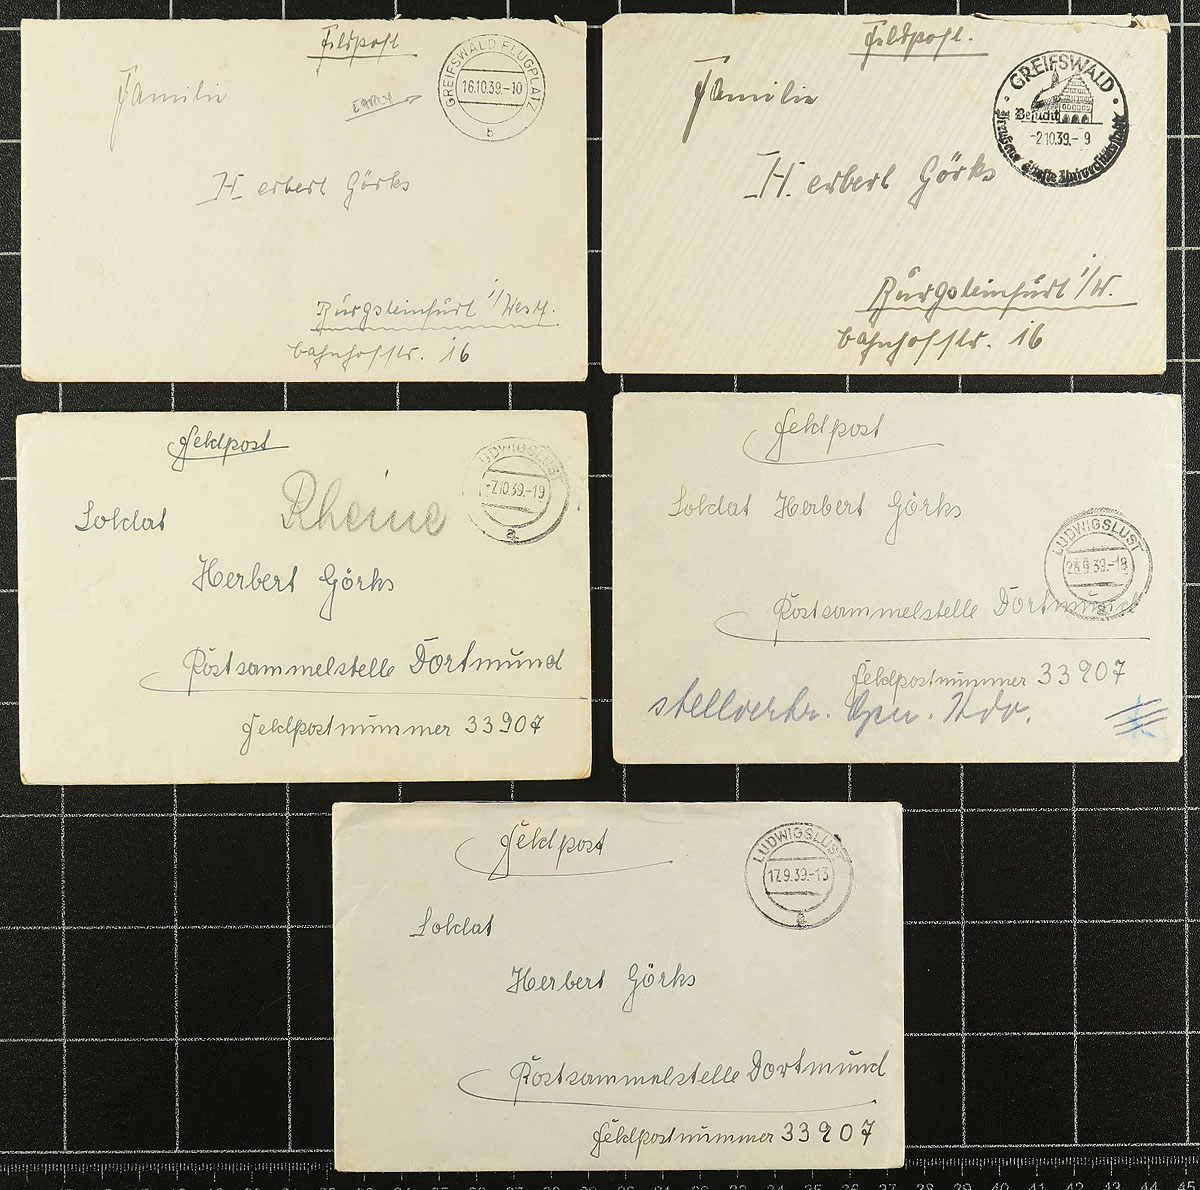 Feldpost
GREIFSWALD FLUGPLATZ
16.10.39.-10
b
Familie
Herbert Görks
Burgsteinfurt i/Westf.
Bahnhofstr. 16
Feldpost.
GREIFSWALD
Besucht
-2.10.39.-9
Preußens älteste Universitätsstadt
Familie
Herbert Görks
Burgsteinfurt i/W.
Bahnhofstr. 16
Feldpost
LUDWIGSLUST
-7.10.39.-19
a
Soldat
Rheine
Herbert Görks
Postsammelstelle Dortmund
Feldpostnummer 33907
Feldpost
Soldat Herbert Görks
LUDWIGSLUST
28.9.39.-18
Postsammelstelle Dortmund
Feldpostnummer 33907
stellvertr. Gen. Kdo.
Feldpost
LUDWIGSLUST
17.9.39.-13
a
Soldat
Herbert Görks
Postsammelstelle Dortmund
Feldpostnummer 33907